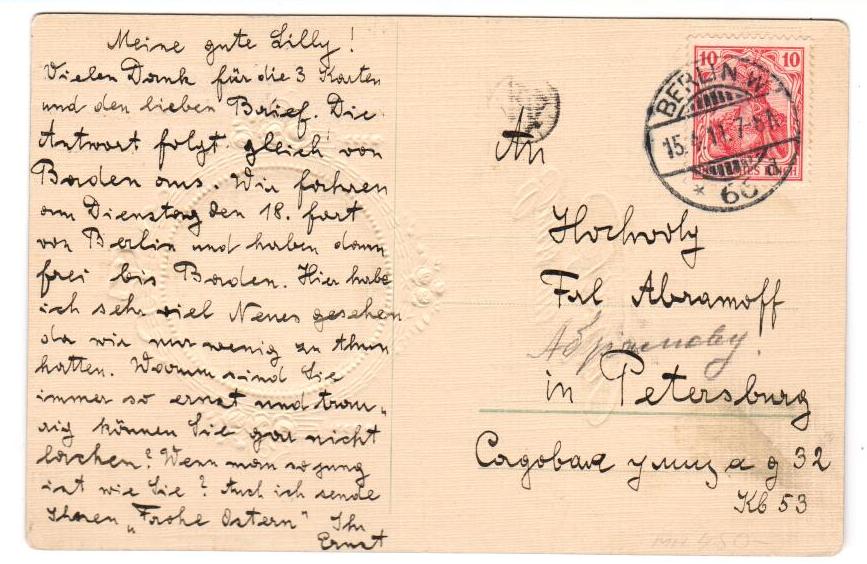 Meine gute Lilly!
Vielen Dank für die 3 Karten
und den lieben Brief. Die
Antwort folgt gleich von
Baden aus. Wir fahren
am Dienstag den 18. fort
von Berlin und haben dann
frei bis Baden. Hier habe
ich sehr viel Neues gesehen
da wir nur wenig zu thun
hatten. Warum sind Sie
immer so ernst und trau„
rig können Sie gar nicht
lachen? Wenn man so jung
ist wie Sie? Auch ich sende
Ihnen „Frohe Ostern" Ihr
Ernst
10 10
BERLIN W
15.4.11.7-8
* 66 d
An
Hochwolg
Frl Abramoff
Абрамову
in Petersburg
Садовая улица д 32
Кв 53